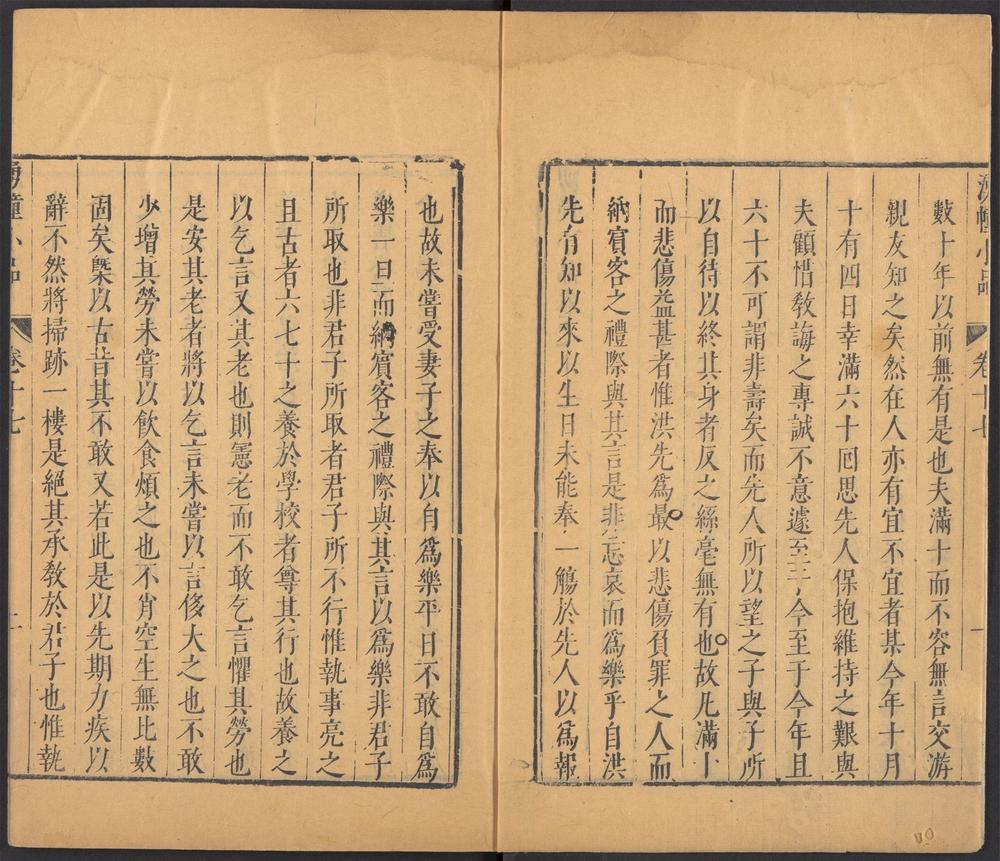 湧幢小品
卷十七
一
數十年以前無有是也夫滿十而不容無言交游
親友知之矣然在人亦有宜不宜者某今年十月
十有四日幸滿六十回思先人保抱維持之艱與
夫顧惜教誨之專誠不意遽至于今至于今年且
六十不可謂非壽矣而先人所以望之子與子所
以自待以終其身者反之絲毫無有也故凡滿十
而悲傷益甚者惟洪先為最以悲傷負罪之人而
納賓客之禮際與其言是非忘哀而為樂乎自洪
先有知以來以生日未能奉一觴於先人以為報
也故未嘗受妻子之奉以自為樂平日不敢自為
樂一旦而納賓客之禮際與其言以為樂非君子
所取也非君子所取者君子所不行惟執事亮之
且古者六七十之養於學校者尊其行也故養之
以乞言又其老也則憲老而不敢乞言懼其勞也
是安其老者將以乞言未嘗以言侈大之也不敢
少增其勞未嘗以飲食煩之也不肖空生無比數
固矣槩以古昔其不敢又若此是以先期力疾以
辭不然將掃跡一樓是絕其承教於君子也惟執
湧幢小品
卷十七